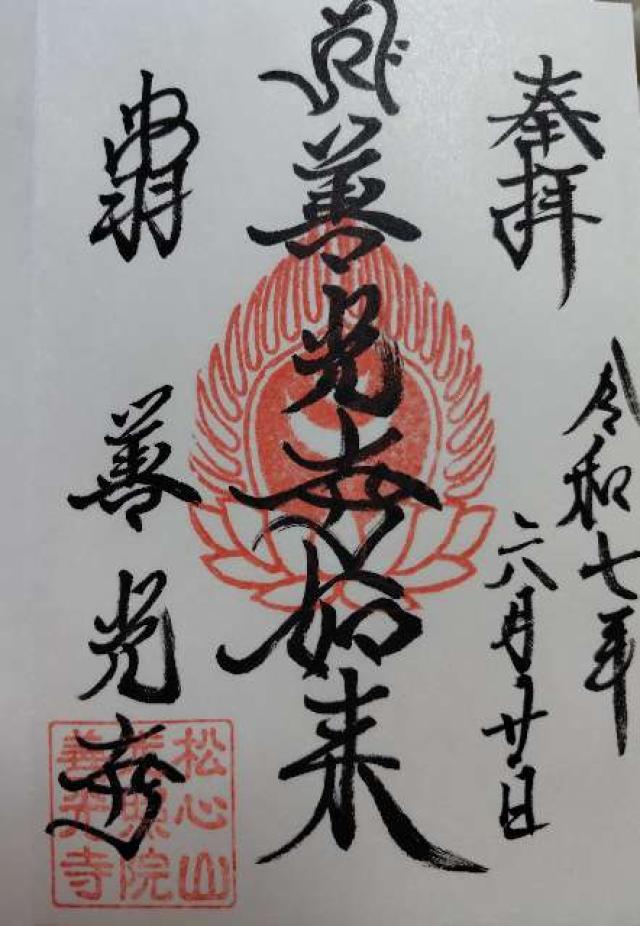 奉拝
令和七年
六月廿日
善光寺如来
出羽
善光寺
松心山
照院
善光寺